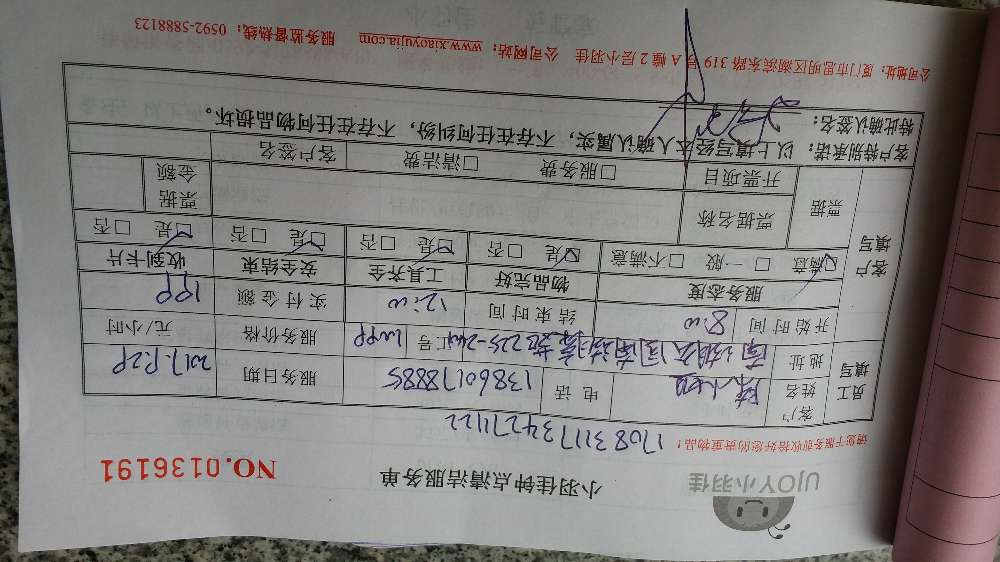 UJOY小羽佳
小羽佳钟点清洁服务单
NO.0136191
请您于服务前收拾好您的贵重物品！
1708311734271122
员工填写
客户姓名
电话 13860178885
服务日期
地址
工号
服务价格 元/小时
开始时间 8:00
结束时间 12:00
实付金额
客户填写
服务态度 物品完好 工具齐全 安全结束 收到卡片
☑满意 □一般 □不满意 ☑是 □否 ☑是 □否 ☑是 □否 ☑是 □否
票据
票据名称
票据金额
开票项目 □服务费 □清洁费
客户签名
客户特别承诺：以上填写经本人确认属实，不存在任何纠纷，不存在任何物品损坏。
特此确认签名：
公司地址：厦门市思明区湖滨东路319号A幢2层小羽佳 公司网站：www.xiaoyujia.com 服务监督热线：0592-5888123